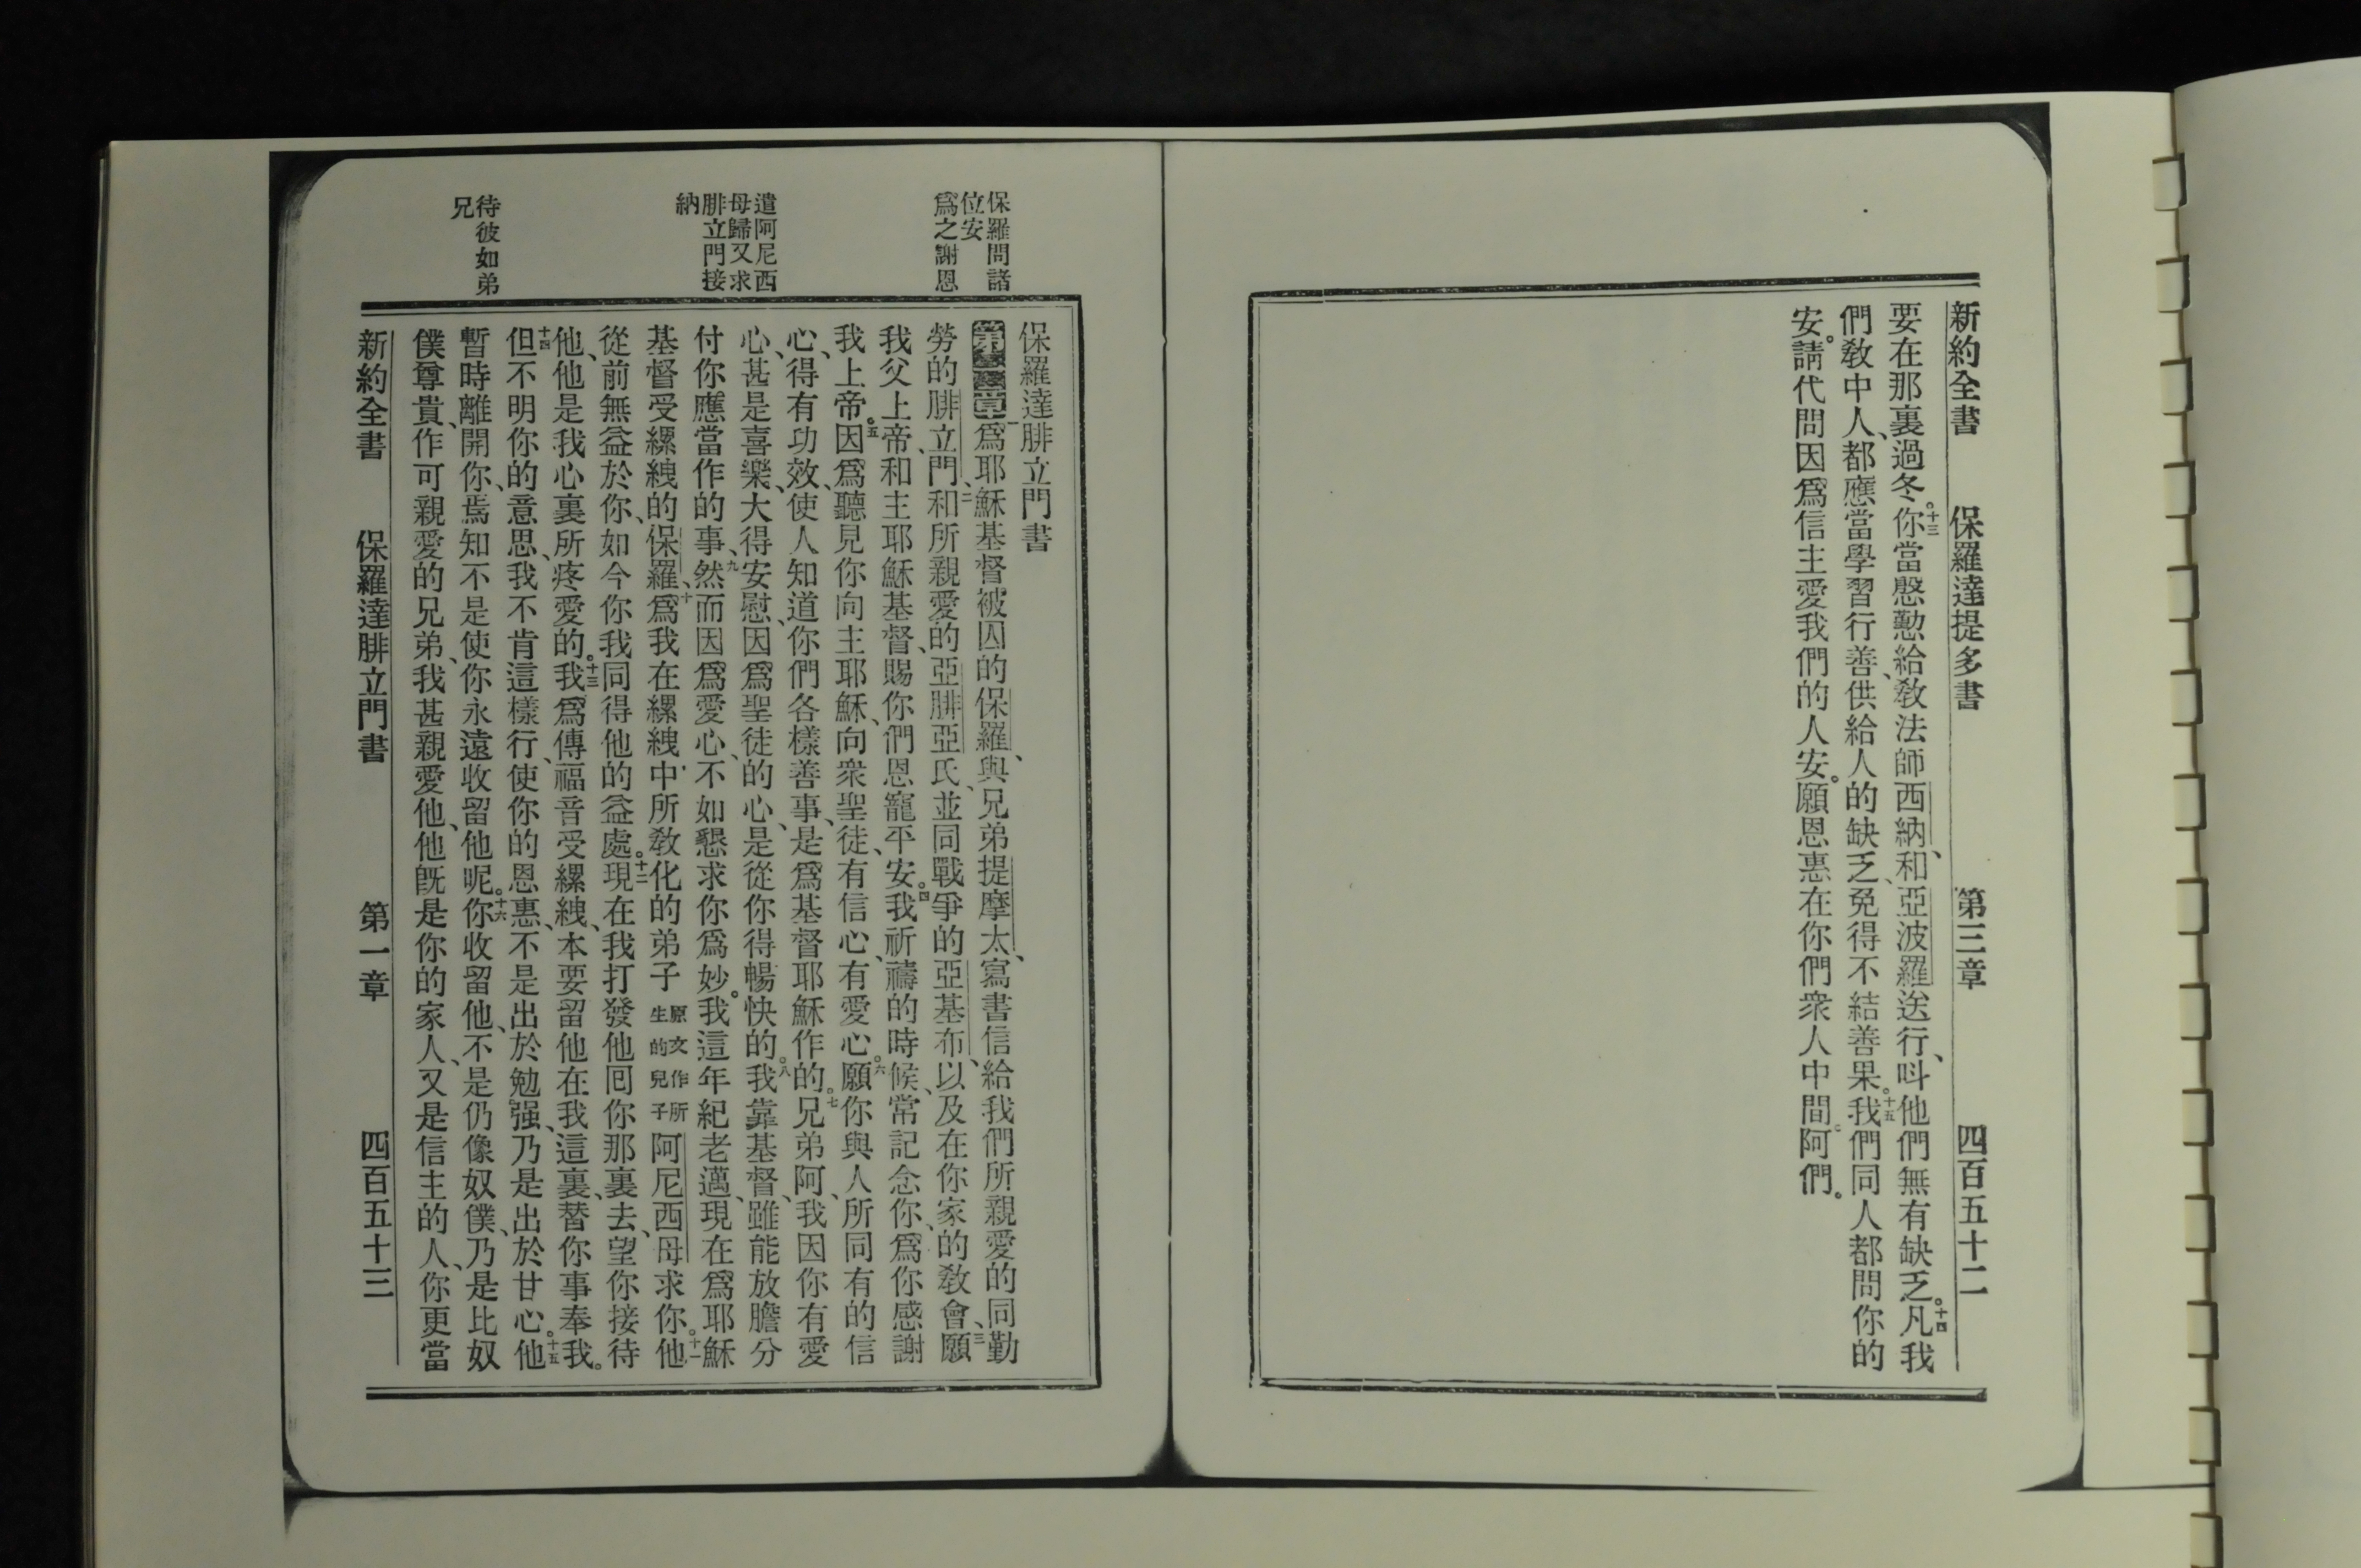 新約全書　保羅達提多書　第三章　四百五十二
要在那裏過冬。十三你當慇懃給敎法師西納、和亞波羅送行、呌他們無有缺乏。十四凡我
們敎中人、都應當學習行善、供給人的缺乏、免得不結善果。十五我們同人都問你的
安。請代問因爲信主愛我們的人安。願恩惠在你們衆人中間。阿們。
保羅問諸
位安
爲之謝恩
遣阿尼西
母歸又求
腓立門接
納
待彼如弟
兄
保羅達腓立門書
第一章一爲耶穌基督被囚的保羅、與兄弟提摩太、寫書信給我們所親愛的同勤
勞的腓立門、二和所親愛的亞腓亞氏、並同戰爭的亞基布、以及在你家的敎會、三願
我父上帝、和主耶穌基督、賜你們恩寵平安。四我祈禱的時候、常記念你、爲你感謝
我上帝。五因爲聽見你向主耶穌、向衆聖徒、有信心、有愛心。六願你與人所同有的信
心、得有功效、使人知道你們各樣善事、是爲基督耶穌作的。七兄弟阿、我因你有愛
心、甚是喜樂、大得安慰、因爲聖徒的心、是從你得暢快的。八我靠基督、雖能放膽分
付你應當作的事、九然而因爲愛心、不如懇求你爲妙。我這年紀老邁、現在爲耶穌
基督受縲絏的保羅、十爲我在縲絏中所敎化的弟子原文作所生的兒子阿尼西母求你。十一他
從前無益於你、如今你我同得他的益處。十二現在我打發他囘你那裏去、望你接待
他、他是我心裏所疼愛的。十三我爲傳福音受縲絏、本要留他在我這裏、替你事奉我。
十四但不明你的意思、我不肯這樣行、使你的恩惠、不是出於勉强、乃是出於甘心。十五他
暫時離開你、焉知不是使你永遠收留他呢。十六你收留他、不是仍像奴僕、乃是比奴
僕尊貴、作可親愛的兄弟、我甚親愛他、他旣是你的家人、又是信主的人、你更當
新約全書　保羅達腓立門書　第一章　四百五十三